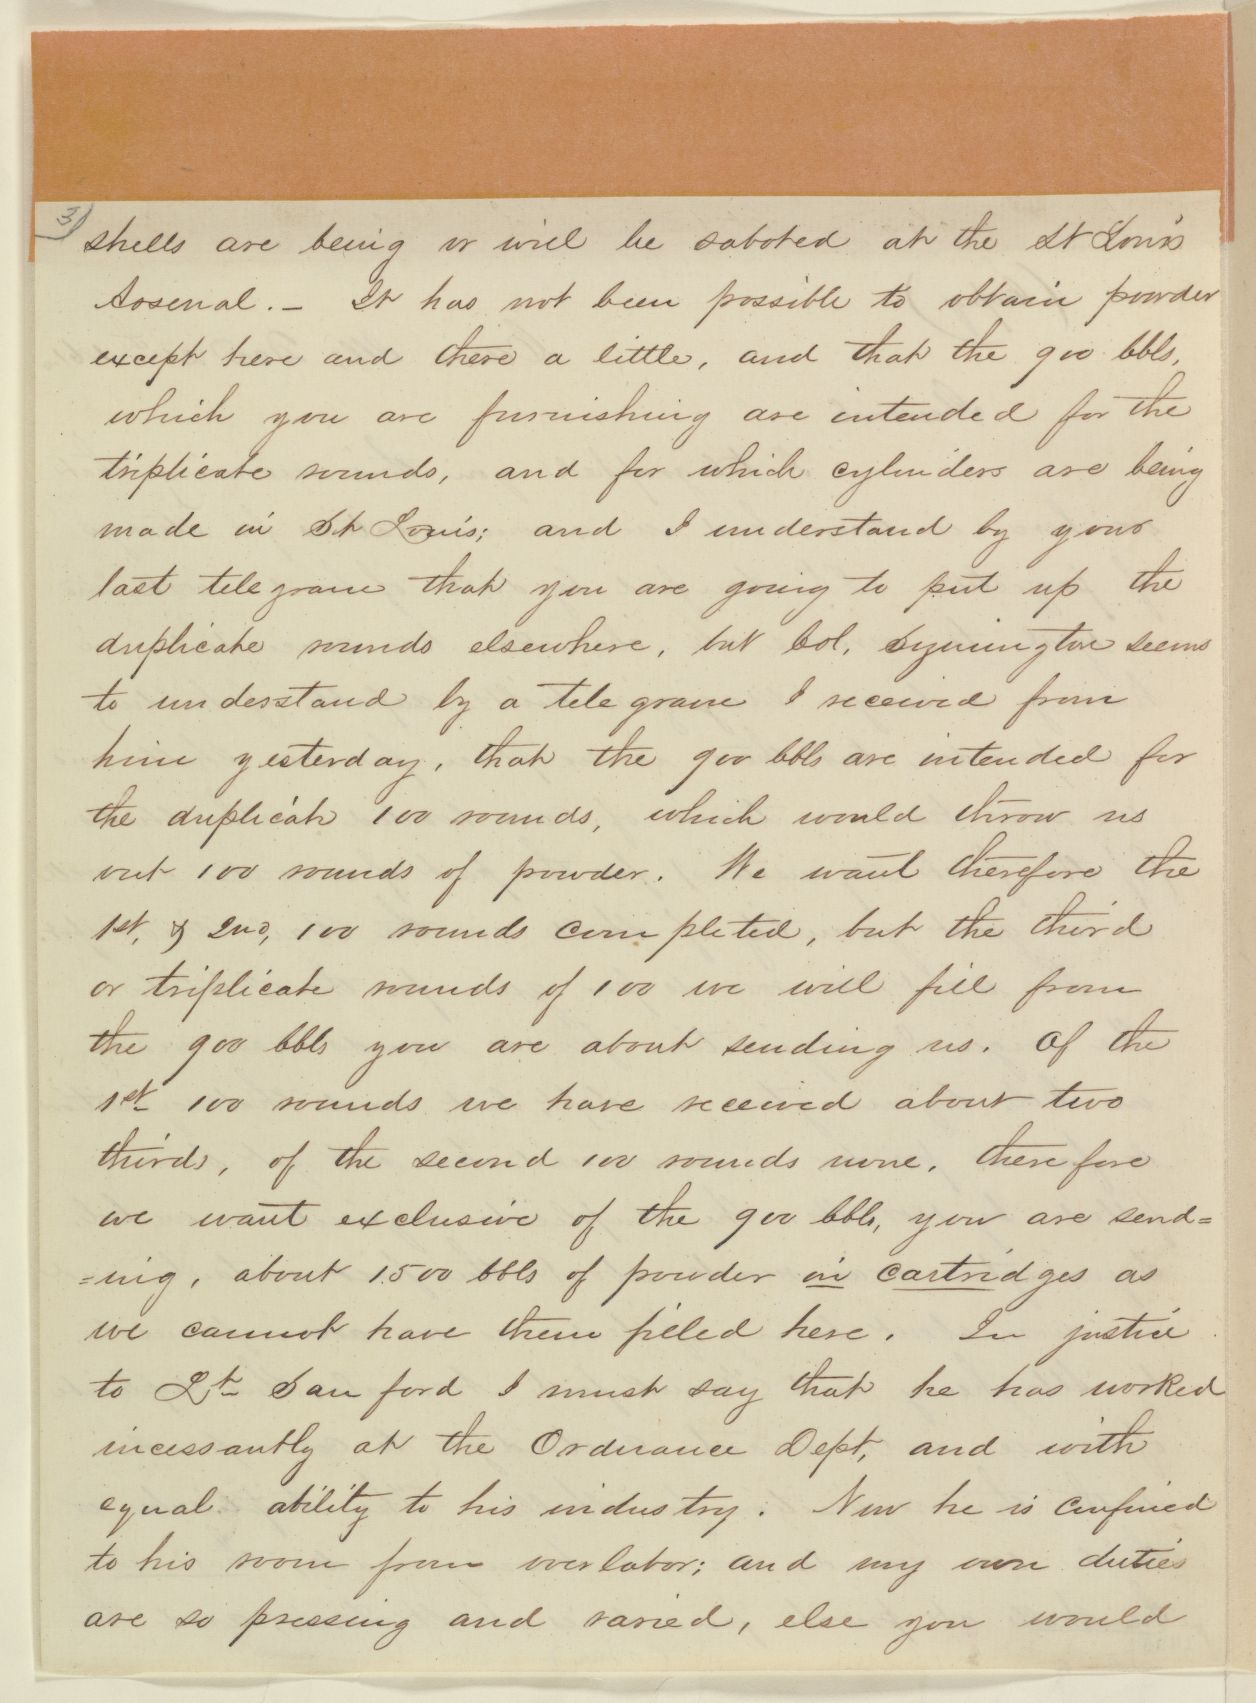 3)
shells are being or will be saboted at the St Louis
Arsenal. – It has not been possible to obtain powder
except here and there a little, and that the 900 bbls,
which you are furnishing are intended for the
triplicate rounds, and for which cylinders are being
made in St Louis; and I understand by your
last telegram that you are going to put up the
duplicate rounds elsewhere, but Col. Symington seems
to understand by a telegram I received from
him yesterday, that the 900 bbls are intended for
the duplicate 100 rounds, which would throw us
out 100 rounds of powder. We want therefore the
1st, & 2nd, 100 rounds completed, but the third
or triplicate rounds of 100 we will fill from
the 900 bbls you are about sending us. Of the
1st 100 rounds we have received about two
thirds, of the second 100 rounds none, therefore
we want exclusive of the 900 bbls, you are send=
=ing, about 1500 bbls of powder in cartridges as
we cannot have them filled here. In justice
to Lt Sanford I must say that he has worked
incessantly at the Ordnance Dept, and with
equal ability to his industry. Now he is confined
to his room from overlabor; and my own duties
are so pressing and varied, else you would